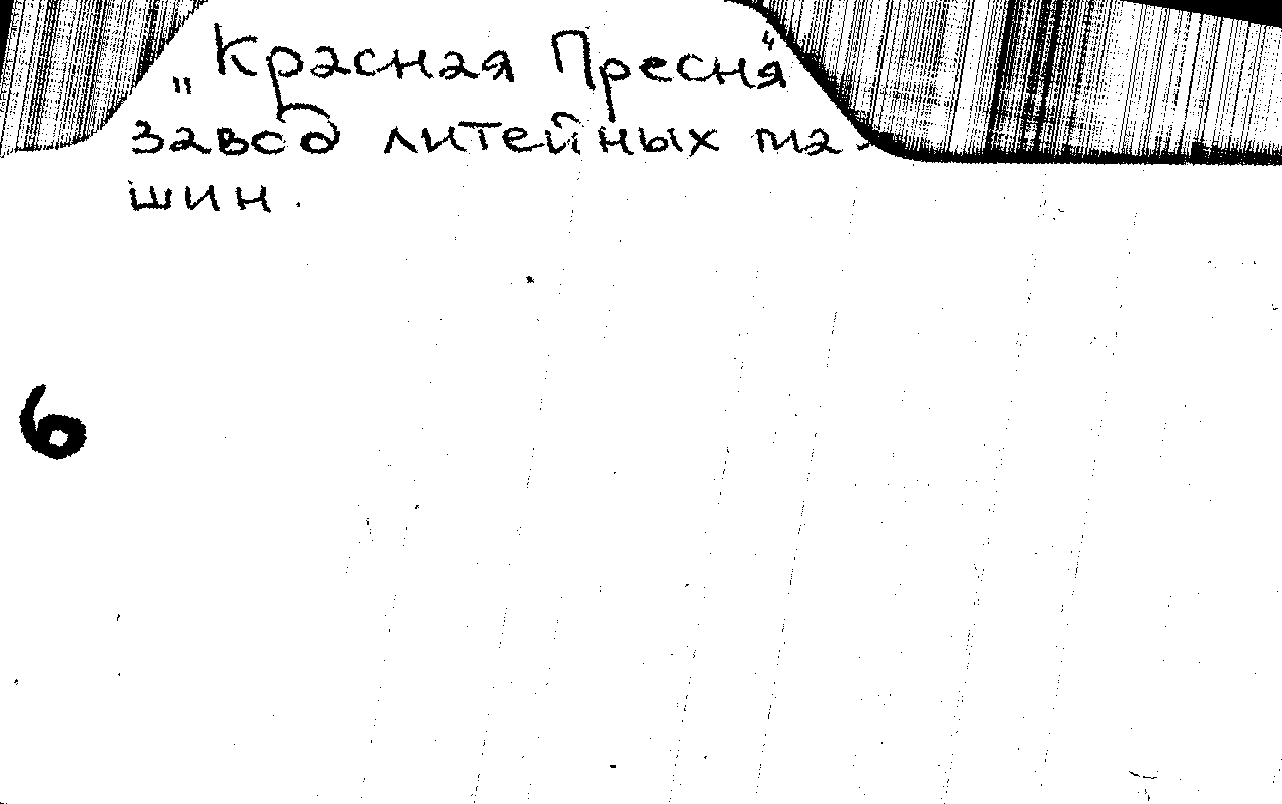 "Красная Пресня"
завод литейных ма-
шин.
6